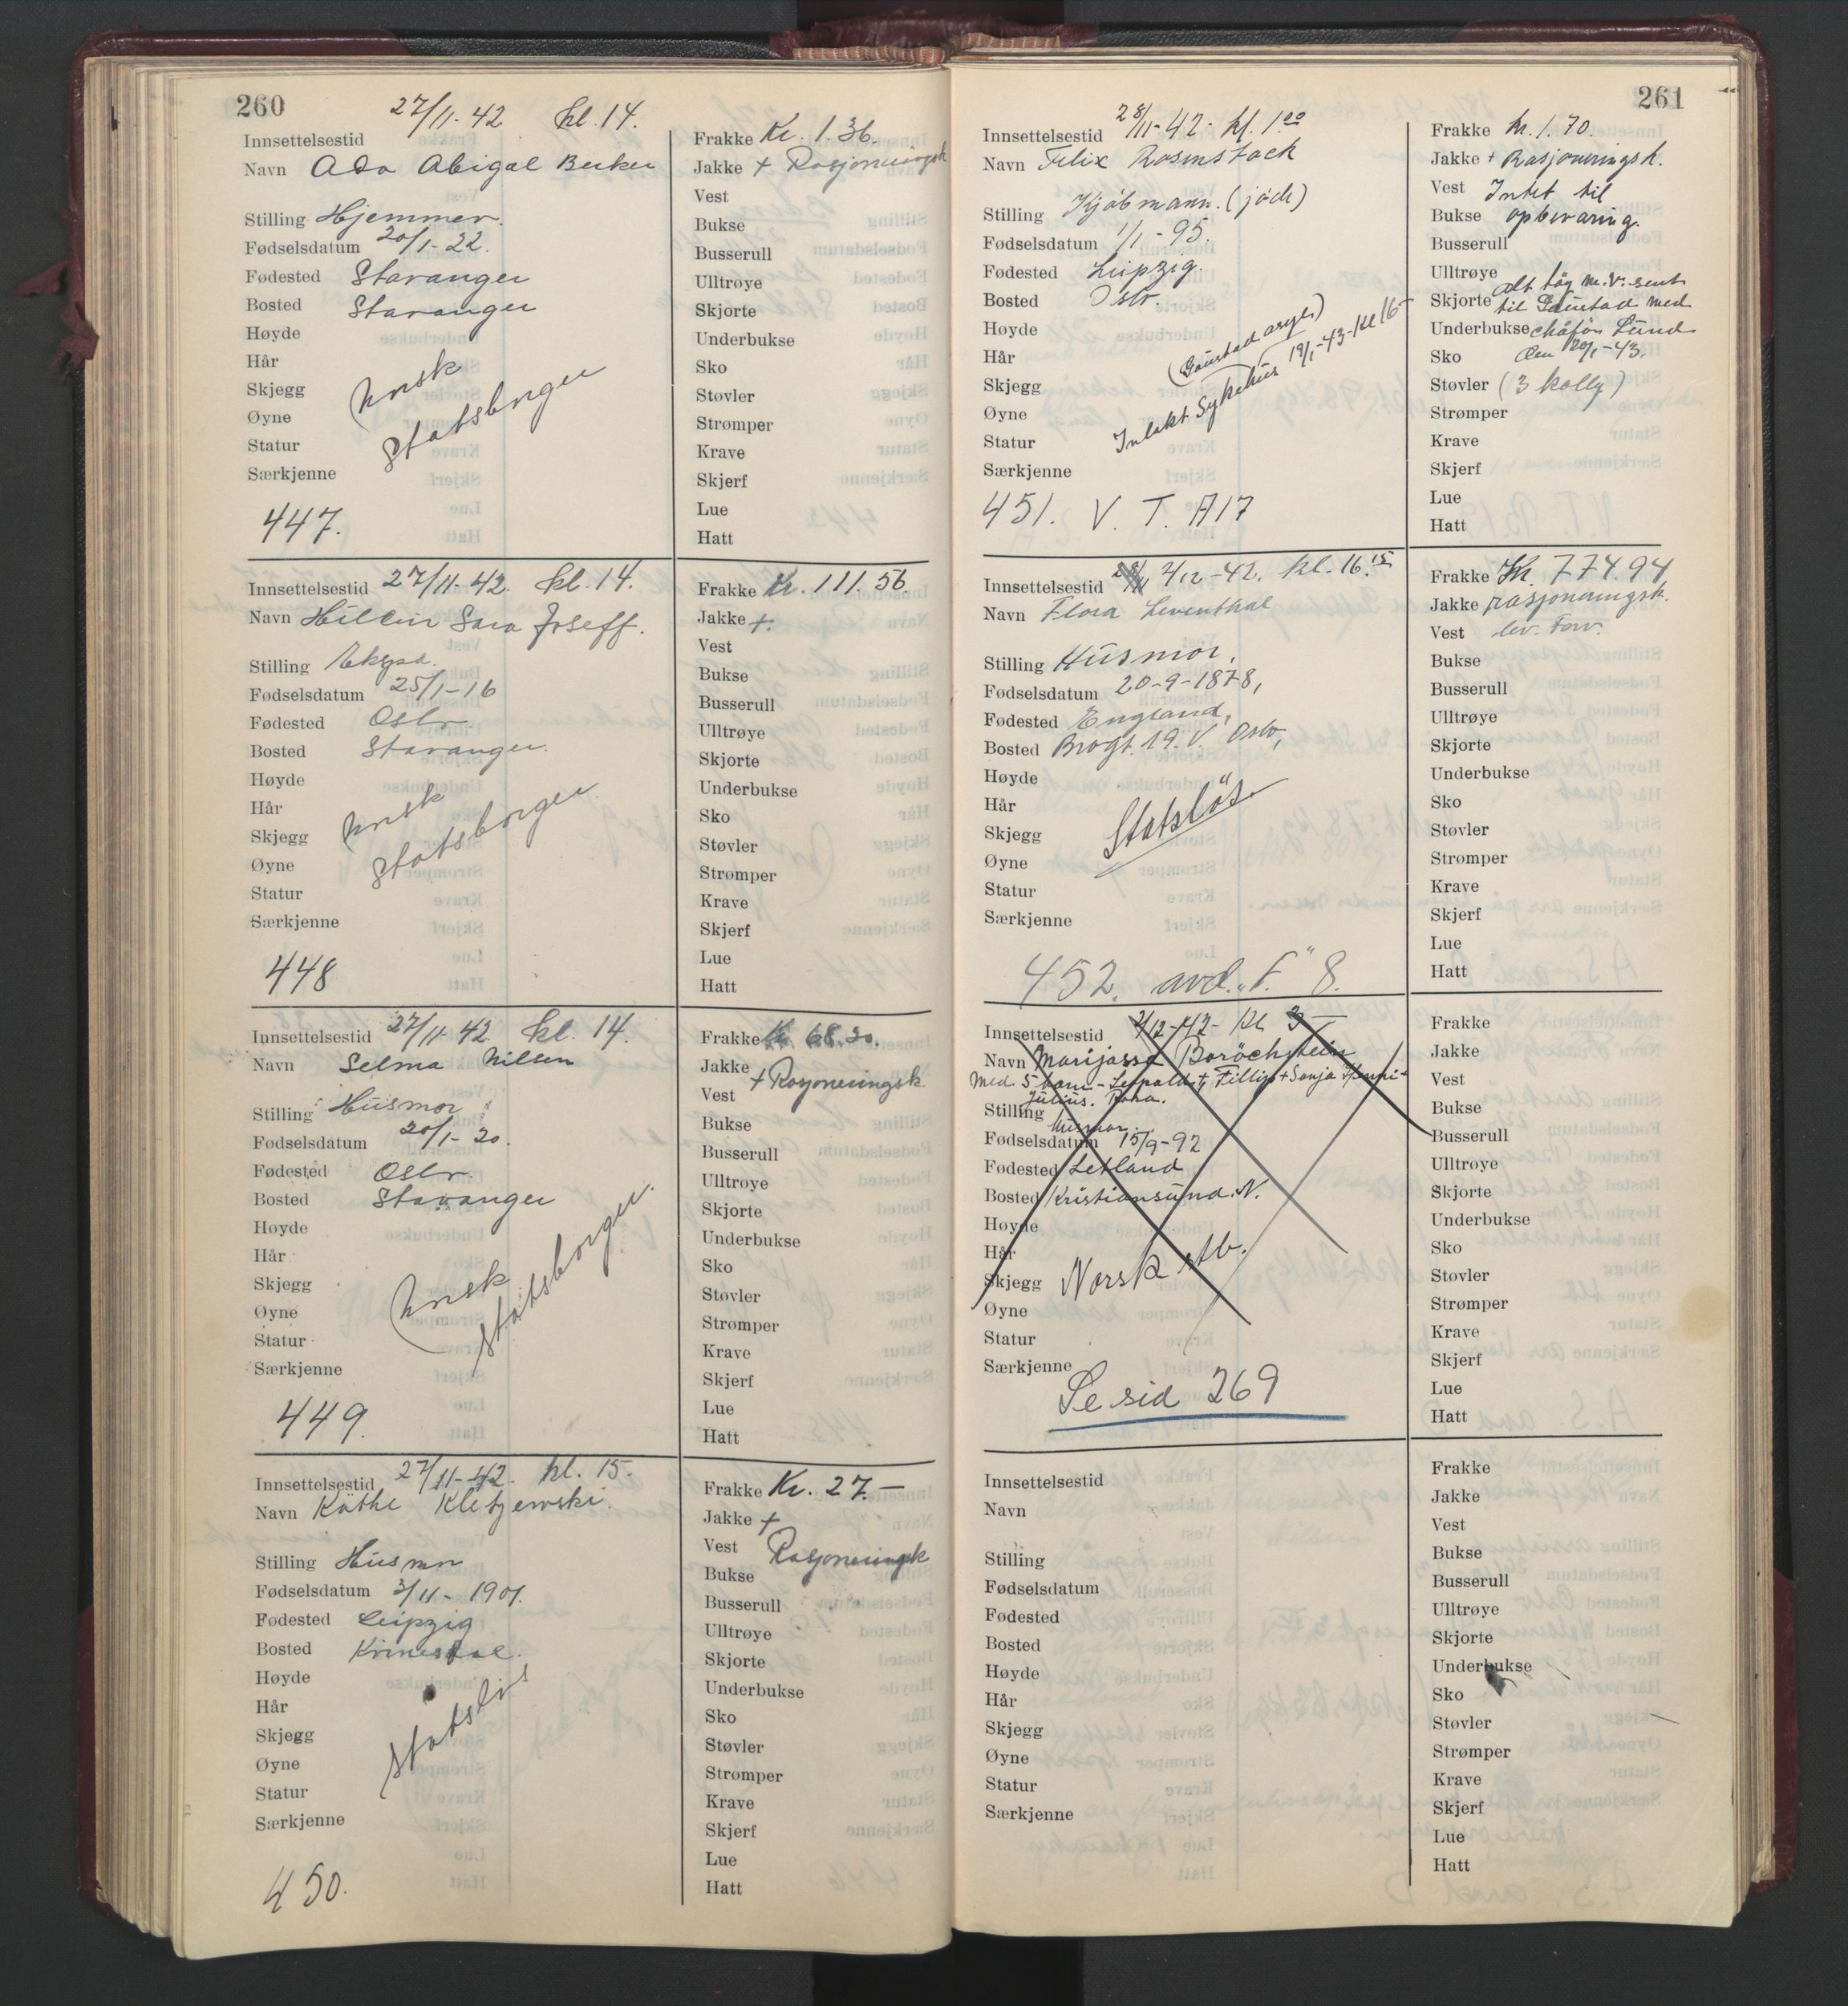 260
Innsettelsestid 27/11-42 kl. 14.
Navn Ada Abigal Becker
Stilling Hjemmev.
Fødselsdatum 20/1-22.
Fødested Stavanger
Bosted Stavanger
Høyde
Hår
Skjegg norsk
Øyne statsborger
Statur
Særkjenne
447.
Frakke Kr. 1.36.
Jakke + Rasjoneringsk
Vest
Bukse
Busserull
Ulltrøye
Skjorte
Underbukse
Sko
Støvler
Strømper
Krave
Skjerf
Lue
Hatt
Innsettelsestid 27/11-42. kl. 14.
Navn Sara Joseff.
Stilling Eksp.
Fødselsdatum 25/1-16
Fødested Oslo
Bosted Stavanger.
Høyde
Hår
Skjegg norsk
Øyne statsborger
Statur
Særkjenne
448
Frakke Kr. 111.56.
Jakke +.
Vest
Bukse
Busserull
Ulltrøye
Skjorte
Underbukse
Sko
Støvler
Strømper
Krave
Skjerf
Lue
Hatt
Innsettelsestid 27/11-42 kl. 14.
Navn Selma Nilsen
Stilling Husmor
Fødselsdatum 20/1-20.
Fødested Oslo.
Bosted Stavanger
Høyde
Hår
Skjegg norsk
Øyne statsborger.
Statur
Særkjenne
449.
Frakke Kr. 68.20.
Jakke
Vest + Rasjoneringsk
Bukse
Busserull
Ulltrøye
Skjorte
Underbukse
Sko
Støvler
Strømper
Krave
Skjerf
Lue
Hatt
Innsettelsestid 27/11-42. kl. 15.
Navn Käthe Kletzewski.
Stilling Husmor
Fødselsdatum 3/11-1901.
Fødested Leipzig
Bosted
Høyde
Hår
Skjegg statsløs
Øyne
Statur
Særkjenne
450.
Frakke Kr. 27.—
Jakke +
Vest Rasjoneringsk
Bukse
Busserull
Ulltrøye
Skjorte
Underbukse
Sko
Støvler
Strømper
Krave
Skjerf
Lue
Hatt
261
Innsettelsestid 28/11-42- kl. 1.20
Navn Felix Rosenstock
Stilling Kjøbmann. (jøde)
Fødselsdatum 1/1-95.
Fødested Leipzig.
Bosted Oslo.
Høyde
Hår (Gaustad asyl)
Skjegg Inlakt Sykehus 19/1-43-kl 16-
Øyne
Statur
Særkjenne
451. V. T. A17
Frakke kr. 1.70.
Jakke + Rasjoneringsk.
Vest Intet til
Bukse opbevaring.
Busserull
Ulltrøye Alt tøy m.v. sent
Skjorte til Gaustad med
Underbukse chåfør Lund
Sko den 20/1-43.
Støvler (3 kolly)
Strømper
Krave
Skjerf
Lue
Hatt
Innsettelsestid 2/12-42. kl. 16.15
Navn Flora Leventhal
Stilling Husmor,
Fødselsdatum 20-9-1878,
Fødested England,
Bosted Brogt. 19. V. Oslo,
Høyde
Hår
Skjegg Statsløs.
Øyne
Statur
Særkjenne
452. avd. „F." 8.
Frakke Kr. 774.94
Jakke rasjoneringsk.
Vest lev. Forv.
Bukse
Busserull
Ulltrøye
Skjorte
Underbukse
Sko
Støvler
Strømper
Krave
Skjerf
Lue
Hatt
Innsettelsestid 2/12-42- kl. 3—
Navn Marijassa Boröchstein
med 5 barn - Leopold + Fillip + Sonja Henni +
Julius.
Stilling Husmor.
Fødselsdatum 15/9-92
Fødested Letland
Bosted Kristiansund. N.
Høyde
Hår
Skjegg Norsk stb.
Øyne
Statur
Særkjenne
Se sid 269
Frakke
Jakke
Vest
Bukse
Busserull
Ulltrøye
Skjorte
Underbukse
Sko
Støvler
Strømper
Krave
Skjerf
Lue
Hatt
Innsettelsestid
Navn
Stilling
Fødselsdatum
Fødested
Bosted
Høyde
Hår
Skjegg
Øyne
Statur
Særkjenne
Frakke
Jakke
Vest
Bukse
Busserull
Ulltrøye
Skjorte
Underbukse
Sko
Støvler
Strømper
Krave
Skjerf
Lue
Hatt